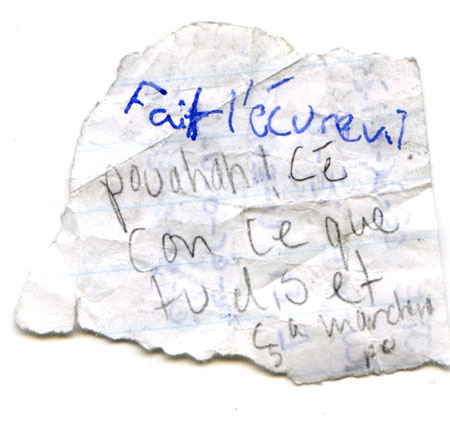 Fait l'écureuil
pouahah ! Cé
con ce que
tu dis et
ça marchera
pa